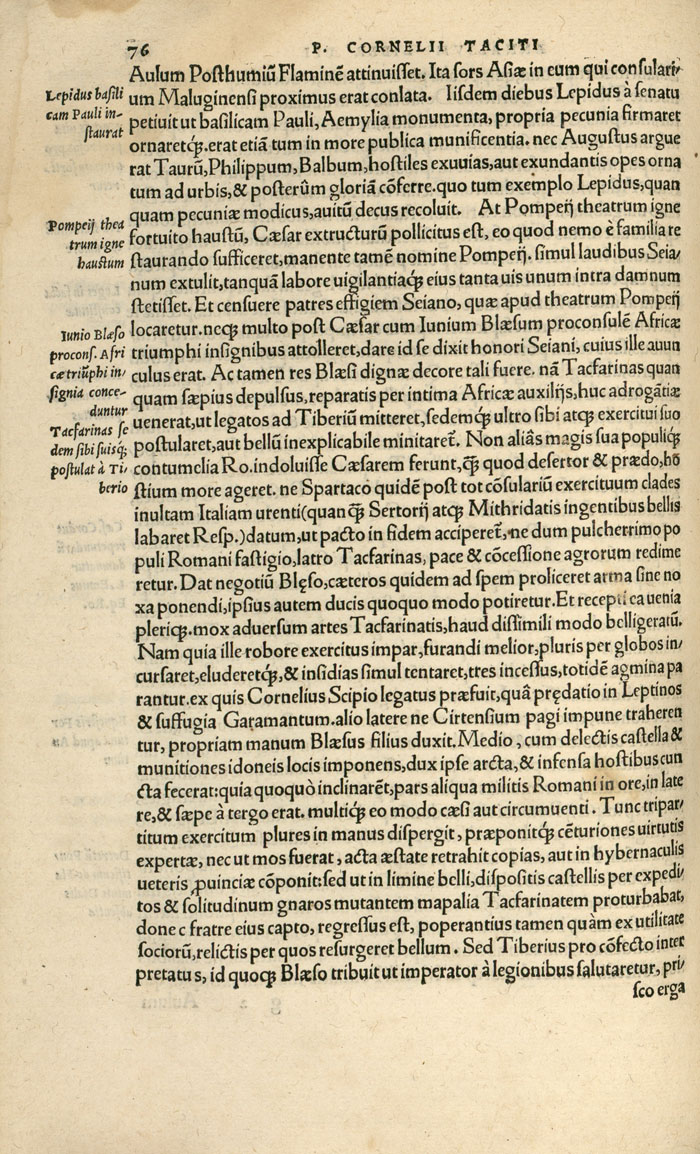 76 P. CORNELII TACITI
Lepidus basili
cam Pauli in-
staurat
Pompeij thea
trum igne
haustum
Iunio Blæso
procons. Afri
cæ triũphi in/
signia conce-
duntur
Tacfarinas se
dem sibi suisq́;
postulat à Ti/
berio
Aulum Posthumiũ Flaminẽ attinuisset. Ita sors Asiæ in eum qui consulari/
um Maluginensi proximus erat conlata. Iisdem diebus Lepidus à senatu
petiuit ut basilicam Pauli, Aemylia monumenta, propria pecunia firmaret
ornaretq́;. erat etiã tum in more publica munificentia. nec Augustus argue
rat Taurũ, Philippum, Balbum, hostiles exuuias, aut exundantis opes orna
tum ad urbis, & posterûm gloriã cõferre. quo tum exemplo Lepidus, quan
quam pecuniæ modicus, auitũ decus recoluit. At Pompeij theatrum igne
fortuito haustũ, Cæsar extructurũ pollicitus est, eo quod nemo è familia re
staurando sufficeret, manente tamẽ nomine Pompeij. simul laudibus Seia/
num extulit, tanquã labore uigilantiaq́; eius tanta uis unum intra damnum
stetisset. Et censuere patres effigiem Seiano, quæ apud theatrum Pompeij
locaretur. neq; multo post Cæsar cum Iunium Blæsum proconsulẽ Africæ
triumphi insignibus attolleret, dare id se dixit honori Seiani, cuius ille auun
culus erat. Ac tamen res Blæsi dignæ decore tali fuere. nã Tacfarinas quan
quam sæpius depulsus, reparatis per intima Africæ auxilijs, huc adrogãtiæ
uenerat, ut legatos ad Tiberiũ mitteret, sedemq́; ultro sibi atq; exercitui suo
postularet, aut bellũ inexplicabile minitareť. Non aliâs magis sua populiq́;
contumelia Ro. indoluisse Cæsarem ferunt, q̃; quod desertor & prædo, hõ
stium more ageret. ne Spartaco quidẽ post tot cõsulariũ exercituum clades
inultam Italiam urenti (quanq̃; Sertorij atq; Mithridatis ingentibus bellis
labaret Resp.) datum, ut pacto in fidem acciperet̃, ne dum pulcherrimo po
puli Romani fastigio, latro Tacfarinas, pace & cõcessione agrorum redime
retur. Dat negotiũ Blęso, cæteros quidem ad spem proliceret arma sine no
xa ponendi, ipsius autem ducis quoquo modo potiretur. Et recepti ea uenia
pleriq;. mox aduersum artes Tacfarinatis, haud dissimili modo belligeratũ.
Nam quia ille robore exercitus impar, furandi melior, pluris per globos in/
cursaret, eluderetq́;, & insidias simul tentaret, tres incessus, totidẽ agmina pa
rantur. ex quis Cornelius Scipio legatus præfuit, quâ prędatio in Leptinos
& suffugia Garamantum. alio latere ne Cirtensium pagi impune traheren
tur, propriam manum Blæsus filius duxit. Medio, cum delectis castella &
munitiones idoneis locis imponens, dux ipse arcta, & infensa hostibus cun
cta fecerat: quia quoquò inclinarẽt, pars aliqua militis Romani in ore, in late
re, & sæpe à tergo erat. multiq́; eo modo cæsi aut circumuenti. Tunc tripar/
titum exercitum plures in manus dispergit, præponitq́; cẽturiones uirtutis
expertæ, nec ut mos fuerat, acta æstate retrahit copias, aut in hybernaculis
ueteris ꝓuinciæ cõponit: sed ut in limine belli, dispositis castellis per expedi/
tos & solitudinum gnaros mutantem mapalia Tacfarinatem proturbabat,
done c fratre eius capto, regressus est, poperantius tamen quàm ex utilitate
sociorũ, relictis per quos resurgeret bellum. Sed Tiberius pro cõfecto inter
pretatu s, id quoq; Blæso tribuit ut imperator à legionibus salutaretur, pri/
sco erga